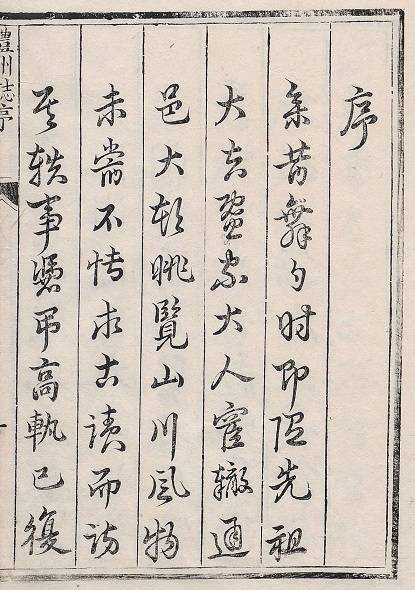 序
余昔舞勺时即随先祖
大夫暨家大人宦轍通
邑大都眺覽山川風物
未嘗不博求古讀而訪
其軼事憑吊高軌已復
州誌序